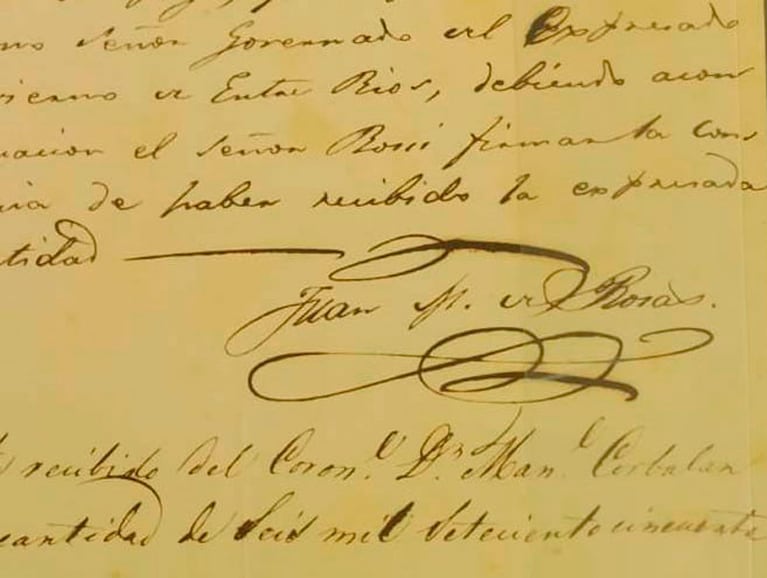 mo Señor Governado del Expresado
vierno de Entre Rios, debiendo a con
uacion el Señor Rossi firmar la cons
cia de haber recibido la expresada
ntidad
Juan M. de Rosas.
recibido del Coron.l Dn Man.l Corbalan
cantidad de Seis mil Setecientos cincuenta